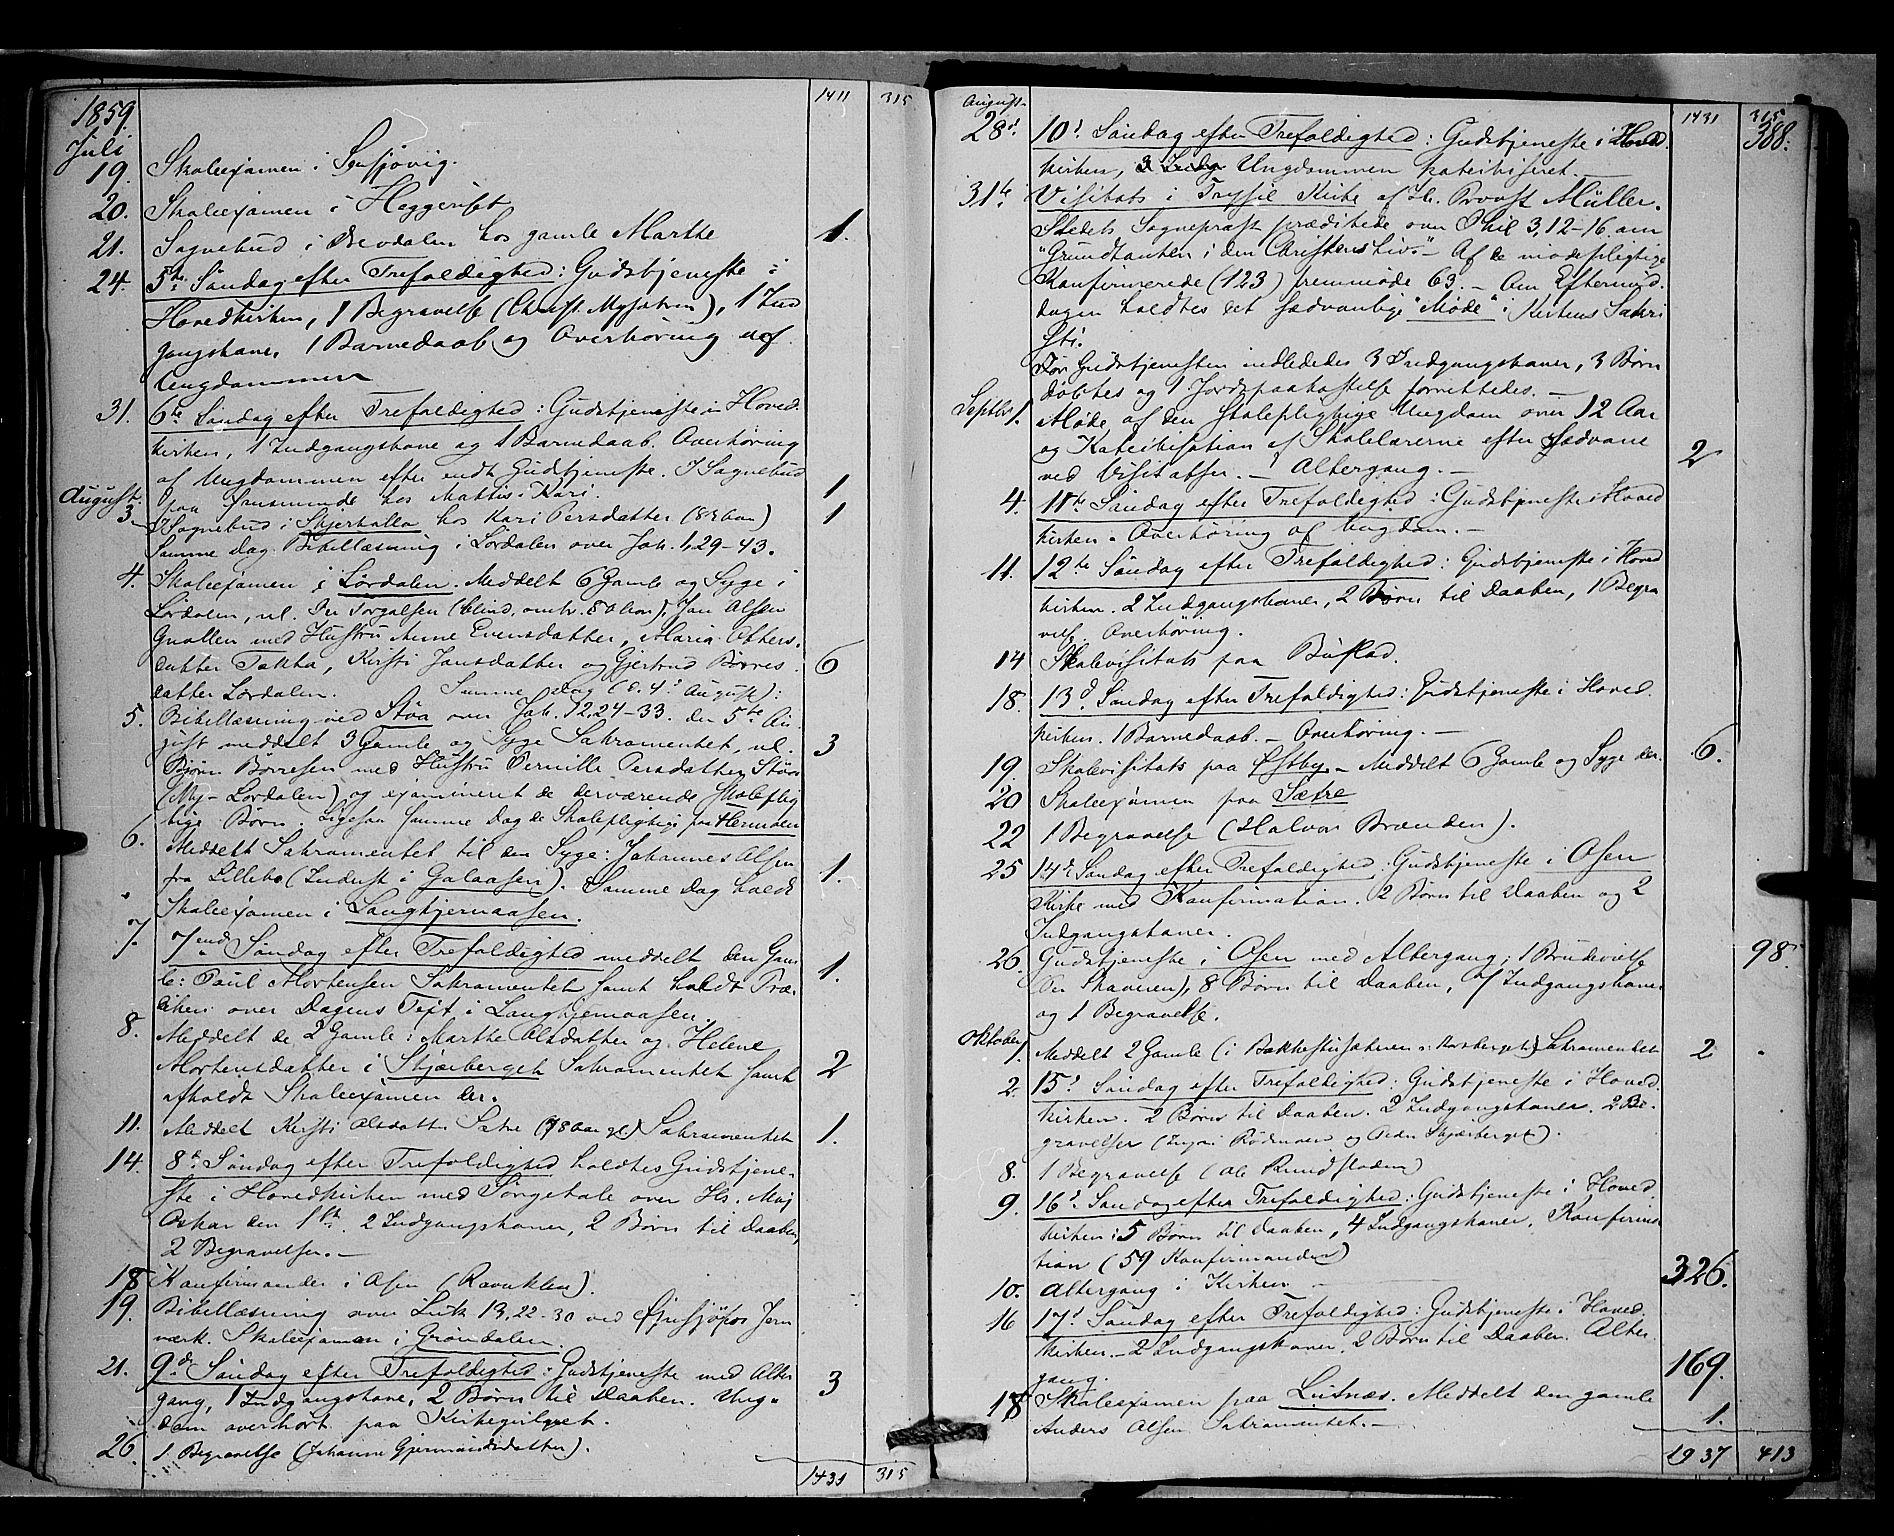 1859.
1411 315
Juli
19. Skoleexamen i Sensjøvig.
20. Skoleexamen i Heggeriset
21. Sognebud i Drevdalen hos gamle Marthe 1.
24. 5te Søndag efter Trefoldighed: Gudstjeneste i
Hovedkirken, 1 Begravelse (Christ. Mysæter), 1 Ind
gangskone. 1 Barnedaab og Overhøring af
Ungdommen
31. 6te Søndag efter Trefoldighed: Gudstjeneste i Hoved
kirken, 1 Indgangskone og 1 Barnedaab. Overhøring
af Ungdommen efter endt Gudstjeneste. I Sognebud
paa hos Mattis i Kari. 1
August
3. I Sognebud i Skjærhalla hos Kari Persdatter (82 Aar) 1
Samme Dag Bibellæsning i Lørdalen over Joh. 1,29-43.
4. Skoleexamen i Lørdalen. Meddelt 6 Gamle og Syge i
Lørdalen, nl. Per Torgalsen (blind, omtr. 50 Aar), Jon Olsen
Gnollen med Hustru Anne Evensdatter, Maria Otters
datter Takka, Kirsti Jonsdatter og Gjertrud Børres 6
datter Lørdalen. Samme Dag (d. 4de August):
5. Bibellæsning ved Støa over Joh. 12,24-33. den 5te Au
gust meddelt 3 Gamle og Syge Sakramentet, nl. 3
Bjørn Børresen med Hustru Pernille Persdatter Støa
(My-Lørdalen) og examineret de derværende skoleplig
tige Børn. Ligesaa samme Dag de Skolepligtige fra Hermolen
6. Meddelt Sakramentet til den Syge: Johannes Olsen
fra Lillebo (Inderst i Galaasen). Samme Dag holdt 1.
Skoleexamen i Langtjernaasen.
7. 7ende Søndag efter Trefoldighed meddelt den Gam
le: Paul Mortensen Sakramentet samt holdt Præ 1.
diken over Dagens Text i Langtjernaasen.
8. Meddelt de 2 Gamle: Marthe Olsdatter og Helene
Mortensdatter i Skjærberget Sakramentet samt 2
afholdt Skoleexamen der.
11. Meddelt Kirsti Olsdatter Sætre (78 Aar gl.) Sakramentet 1.
14. 8de Søndag efter Trefoldighed holdtes Gudstjene-
ste i Hovedkirken med Sørgetale over Hs. Maj
Oskar den 1ste. 2 Indgangskoner, 2 Børn til Daaben,
2 Begravelser.-
18 Konfirmander i Osen (Ravnklev).
19. Bibellæsning over Luk 13,22-30 ved Øjersjøfos Jern
værk. Skoleexamen i Grøndalen.
21. 9de Søndag efter Trefoldighed: Gudstjeneste med Alter
gang, 1 Indgangskone, 2 Børn til Daaben. Ung- 3
dom overhørt paa Kirkegulvet.
26. 1 Begravelse (Johanne Gjermundsdatter).
1431 315
1431 315
388.
August
28d. 10d. Søndag efter Trefoldighed: Gudstjeneste i Hoved
kirken, Ungdommen katechiseret.
31te Visitats i Trysil Kirke af Hr. Provst Müller.
Stedets Sognepræst prædikede over Phil 3,12-16 om
"Grundtanken i den Christens Liv."- Af de mødepligtige
Konfirmerede (123) fremmøde 63.- Om Eftermid
dagen holdtes det sædvanlige "Møde" i Kirkens Sakri
sti.
Før Gudstjenesten indlededes 3 Indgangskoner, 3 Børn
døbtes og 1 Jordspaakastelse forrettedes.-
Septbr 1. Møde af den skolepligtige Ungdom over 12 Aar
og Katechisation af Skolelærerne efter Sædvane
ved Visitatser.- Altergang.- 2
4. 11te Søndag efter Trefoldighed: Gudstjeneste i Hoved
kirken. Overhøring af Ungdom.-
11. 12te Søndag efter Trefoldighed: Gudstjeneste i Hoved
kirken. 2 Indgangskoner, 2 Børn til Daaben, 1 Begra
velse. Overhøring.
14 Skolevisitats paa Buflod.
18. 13d Søndag efter Trefoldighed: Gudstjeneste i Hoved
kirken. 1 Barnedaab.- Overhøring.-
19. Skolevisitats paa Østby.- Meddelt 6 Gamle og Syge der. 6.
20 Skoleexamen paa Sætre
22 1 Begravelse (Halvor Brænden).
25 14d Søndag efter Trefoldighed: Gudstjeneste i Osen
Kirke med Konfirmation. 2 Børn til Daaben og 2
Indgangskoner.
26. Gudstjeneste i Osen med Altergang; 1 Brudevielse 98.
(Per Skaaren), 8 Børn til Daaben, 7 Indgangskoner
og 1 Begravelse.
Oktober
1. Meddelt 2 Gamle (i Sakramentet 2
2. 15d Søndag efter Trefoldighed: Gudstjeneste i Hoved
kirken. 2 Børn til Daaben. 2 Indgangskoner. 2 Be-
gravelser (Rødmoen og Peder Skjærberget).
8. 1 Begravelse (Ole Rundfloden)
9. 16d Søndag efter Trefoldighed: Gudstjeneste i Hoved
kirken: 5 Børn til Daaben, 4 Indgangskoner. Konfirma
tion (59 Konfirmander)
10. Altergang i Kirken 326.
16 17d Søndag efter Trefoldighed: Gudstjeneste i Hoved
kirken.- 2 Indgangskoner, 2 Børn til Daaben. Alter
gang. 169.
18 Skoleexamen paa Lutnæs. Meddelt den gamle
Anders Olsen Sakramentet.- 1.
1937 413